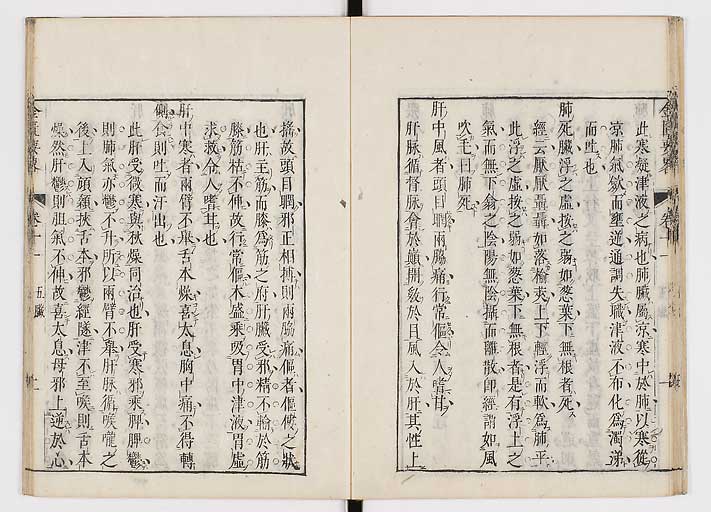 此寒凝津液之病也肺臟屬涼寒中於肺以寒從
涼肺氣歛而壅逆通調失職津液不布化為濁涕
而吐也
肺死臟浮之虛按之弱如葱葉下無根者死
經云厭厭聶聶如落榆莢上下輕浮而軟為肺平
此浮之虛按之弱如葱葉下無根者是有浮上之
氣而無下翕之陰陽無陰攝而離散卽經謂如風
吹毛曰肺死
肝中風者頭目瞤兩脇痛行常傴令人嗜甘
肝脉循督脉會於巔開竅於目風入於肝其性上
搖故頭目瞤邪正相搏則兩脇痛傴者傴僂之狀
也肝主筋而膝為筋之府肝臟受邪精不輸於筋
膝筋枯不伸故行常傴木盛乘吸胃中津液胃虛
求救令人嗜甘也
肝中寒者兩臂不舉舌本燥喜太息胸中痛不得轉
側食則吐而汗出也
此肝受微寒與秋燥同治也肝受寒邪乘脾脾鬱
則肺氣亦鬱不升所以兩臂不舉肝脉循喉嚨之
後上入頏顙挾舌本邪鬱經隧津不至喉則舌本
燥然肝鬱則胆氣不伸故喜太息母邪上逆於心
金匱要略
卷十一
五臟